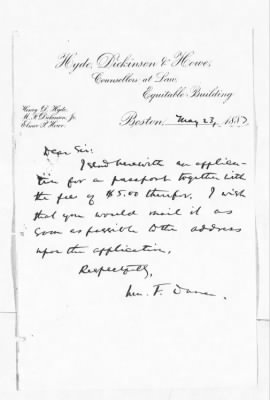 Hyde, Dickinson & Howe,
Counsellors at Law,
Equitable Building
Henry D. Hyde.
M. F. Dickinson, Jr.
Elmer P. Howe.
Boston, May 23, 1887.
Dear Sir:
I send herewith an applica-
tion for a passport together with
the fee of $5.00 therefor. I wish
that you would mail it as
soon as possible to the address
upon the application.
Respectfully,
Wm. F. Dana.